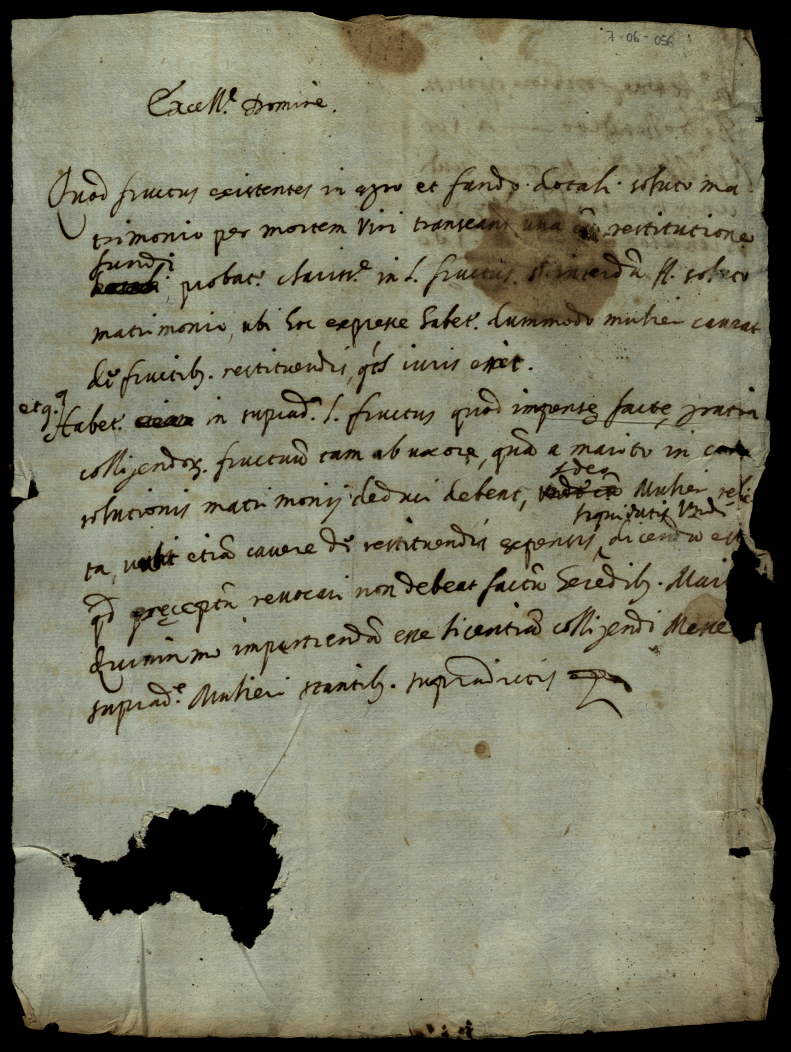 7-06-056
Excell.e Domine.
Quod fructus existentes in agro et fundo dotali soluto ma
trimonio per mortem Viri transeant una cũ restitutione
fundi
probat.r clariss.e in l. fructus. §. interdũ ff. soluto
matrimonio, ubi hoc expresse habet.r dummodo mulier caveat
de fructib. restituendis, q̃ts iuris esset.
et q.q
Habet.r in suprad.a l. fructus quod impensę factę gratia
colligendor. fructuũ tam ab uxore, quã a marito in
solutionis matrimonij deduci debent, Mulier relic
ideo
liquidatis
ta, etiã cavere de restituendis expensis, dicendũ est
q̃d pręceptũ revocari non debeat factũ heredib. Mari
Quinimmo impartiendã esse licentiã colligendi Messe
suprad.e Mulieri stantib. supradictis